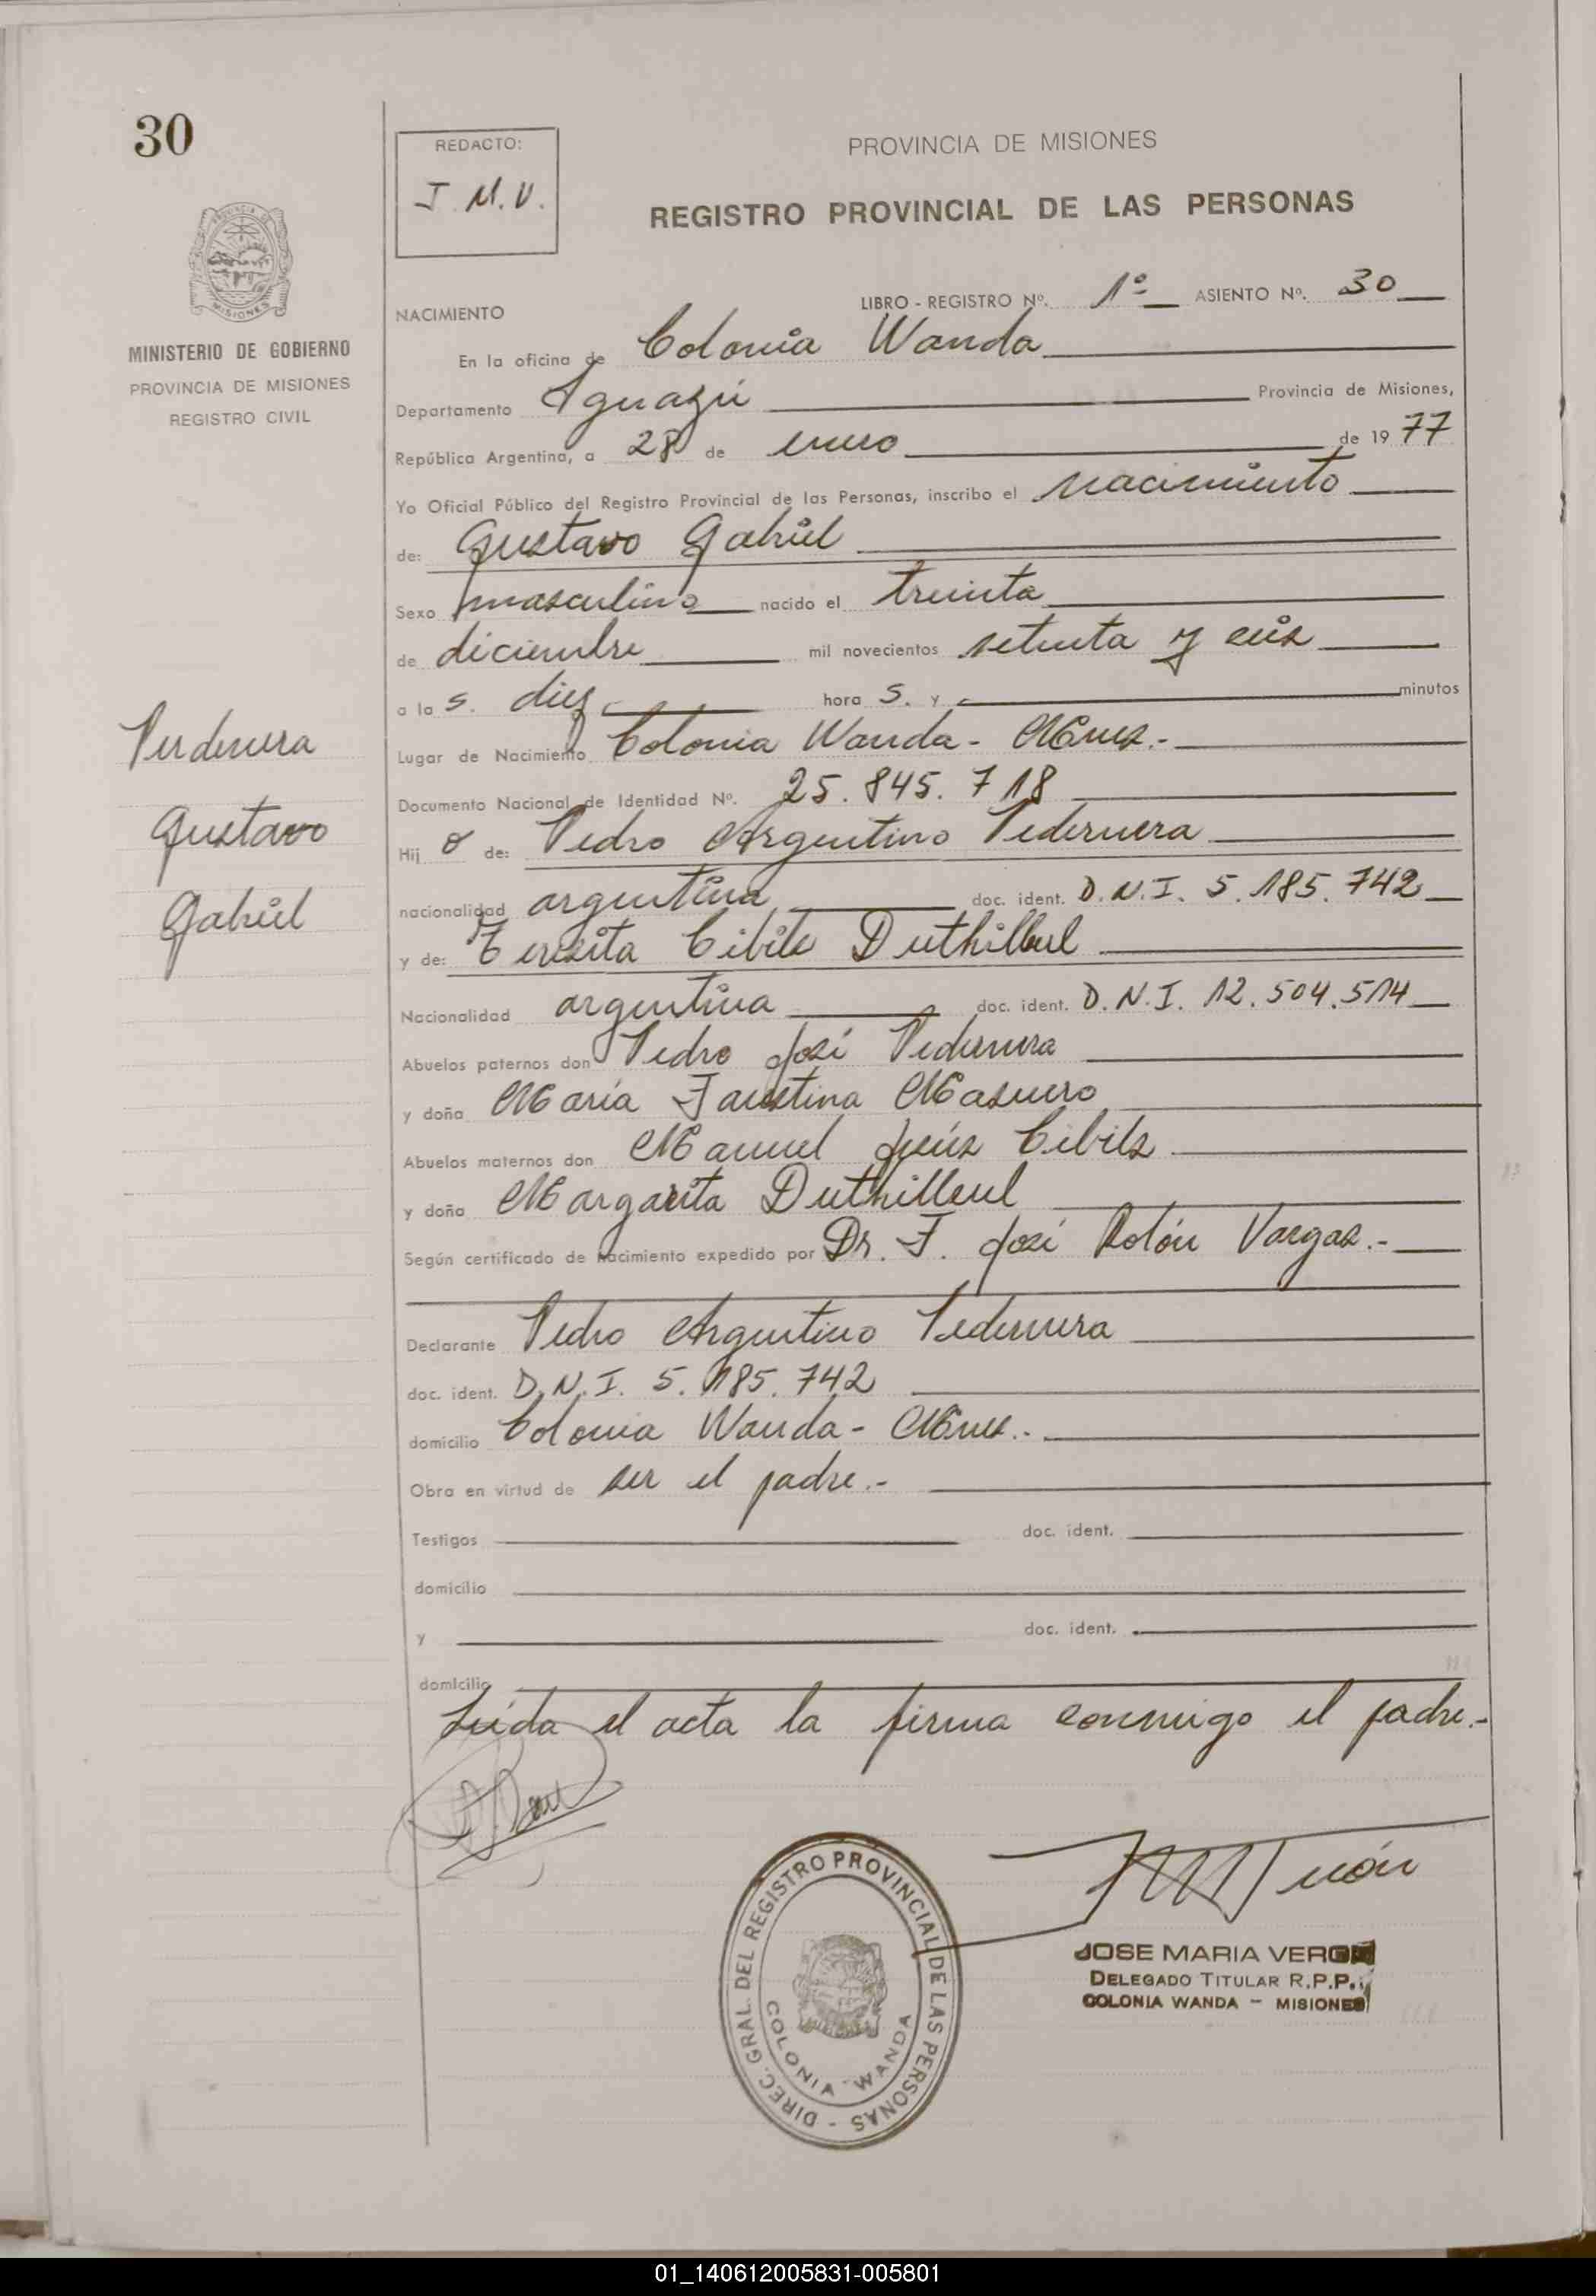 30
REDACTO:
J. M. V.
PROVINCIA DE MISIONES
REGISTRO PROVINCIAL DE LAS PERSONAS
MINISTERIO DE GOBIERNO
PROVINCIA DE MISIONES
REGISTRO CIVIL
NACIMIENTO
LIBRO - REGISTRO Nº. 1º ASIENTO Nº. 30
En la oficina de Colonia Wanda
Departamento Iguazú Provincia de Misiones,
República Argentina, a 28 de enero de 1977
Yo Oficial Público del Registro Provincial de las Personas, inscribo el nacimiento
de: Gustavo Gabriel
Sexo masculino nacido el treinta
de diciembre mil novecientos setenta y seis
a la s. diez hora s. y minutos
Lugar de Nacimiento Colonia Wanda - Mnes.-
Documento Nacional de Identidad Nº. 25.845.718
Hij o de: Pedro Argentino Pedernera
nacionalidad argentina doc. ident. D.N.I. 5.185.742
y de: Teresita Cibils Duthilleul
Nacionalidad argentina doc. ident. D.N.I. 12.504.514
Abuelos paternos don Pedro José Pedernera
y doña María Faustina Masuero
Abuelos maternos don Manuel Jesús Cibils
y doña Margarita Duthilleul
Según certificado de nacimiento expedido por Dr. F. José Rolón Vargas.-
Declarante Pedro Argentino Pedernera
doc. ident. D.N.I. 5.185.742
domicilio Colonia Wanda - Mnes.-
Obra en virtud de ser el padre.-
Testigos doc. ident.
domicilio
y doc. ident.
domicilio
Leída el acta la firma conmigo el padre.-
Pedernera
Gustavo
Gabriel
DIREC. GRAL. DEL REGISTRO PROVINCIAL DE LAS PERSONAS -
COLONIA WANDA
JOSE MARIA
DELEGADO TITULAR R.P.P.
COLONIA WANDA - MISIONES
01_140612005831-005801